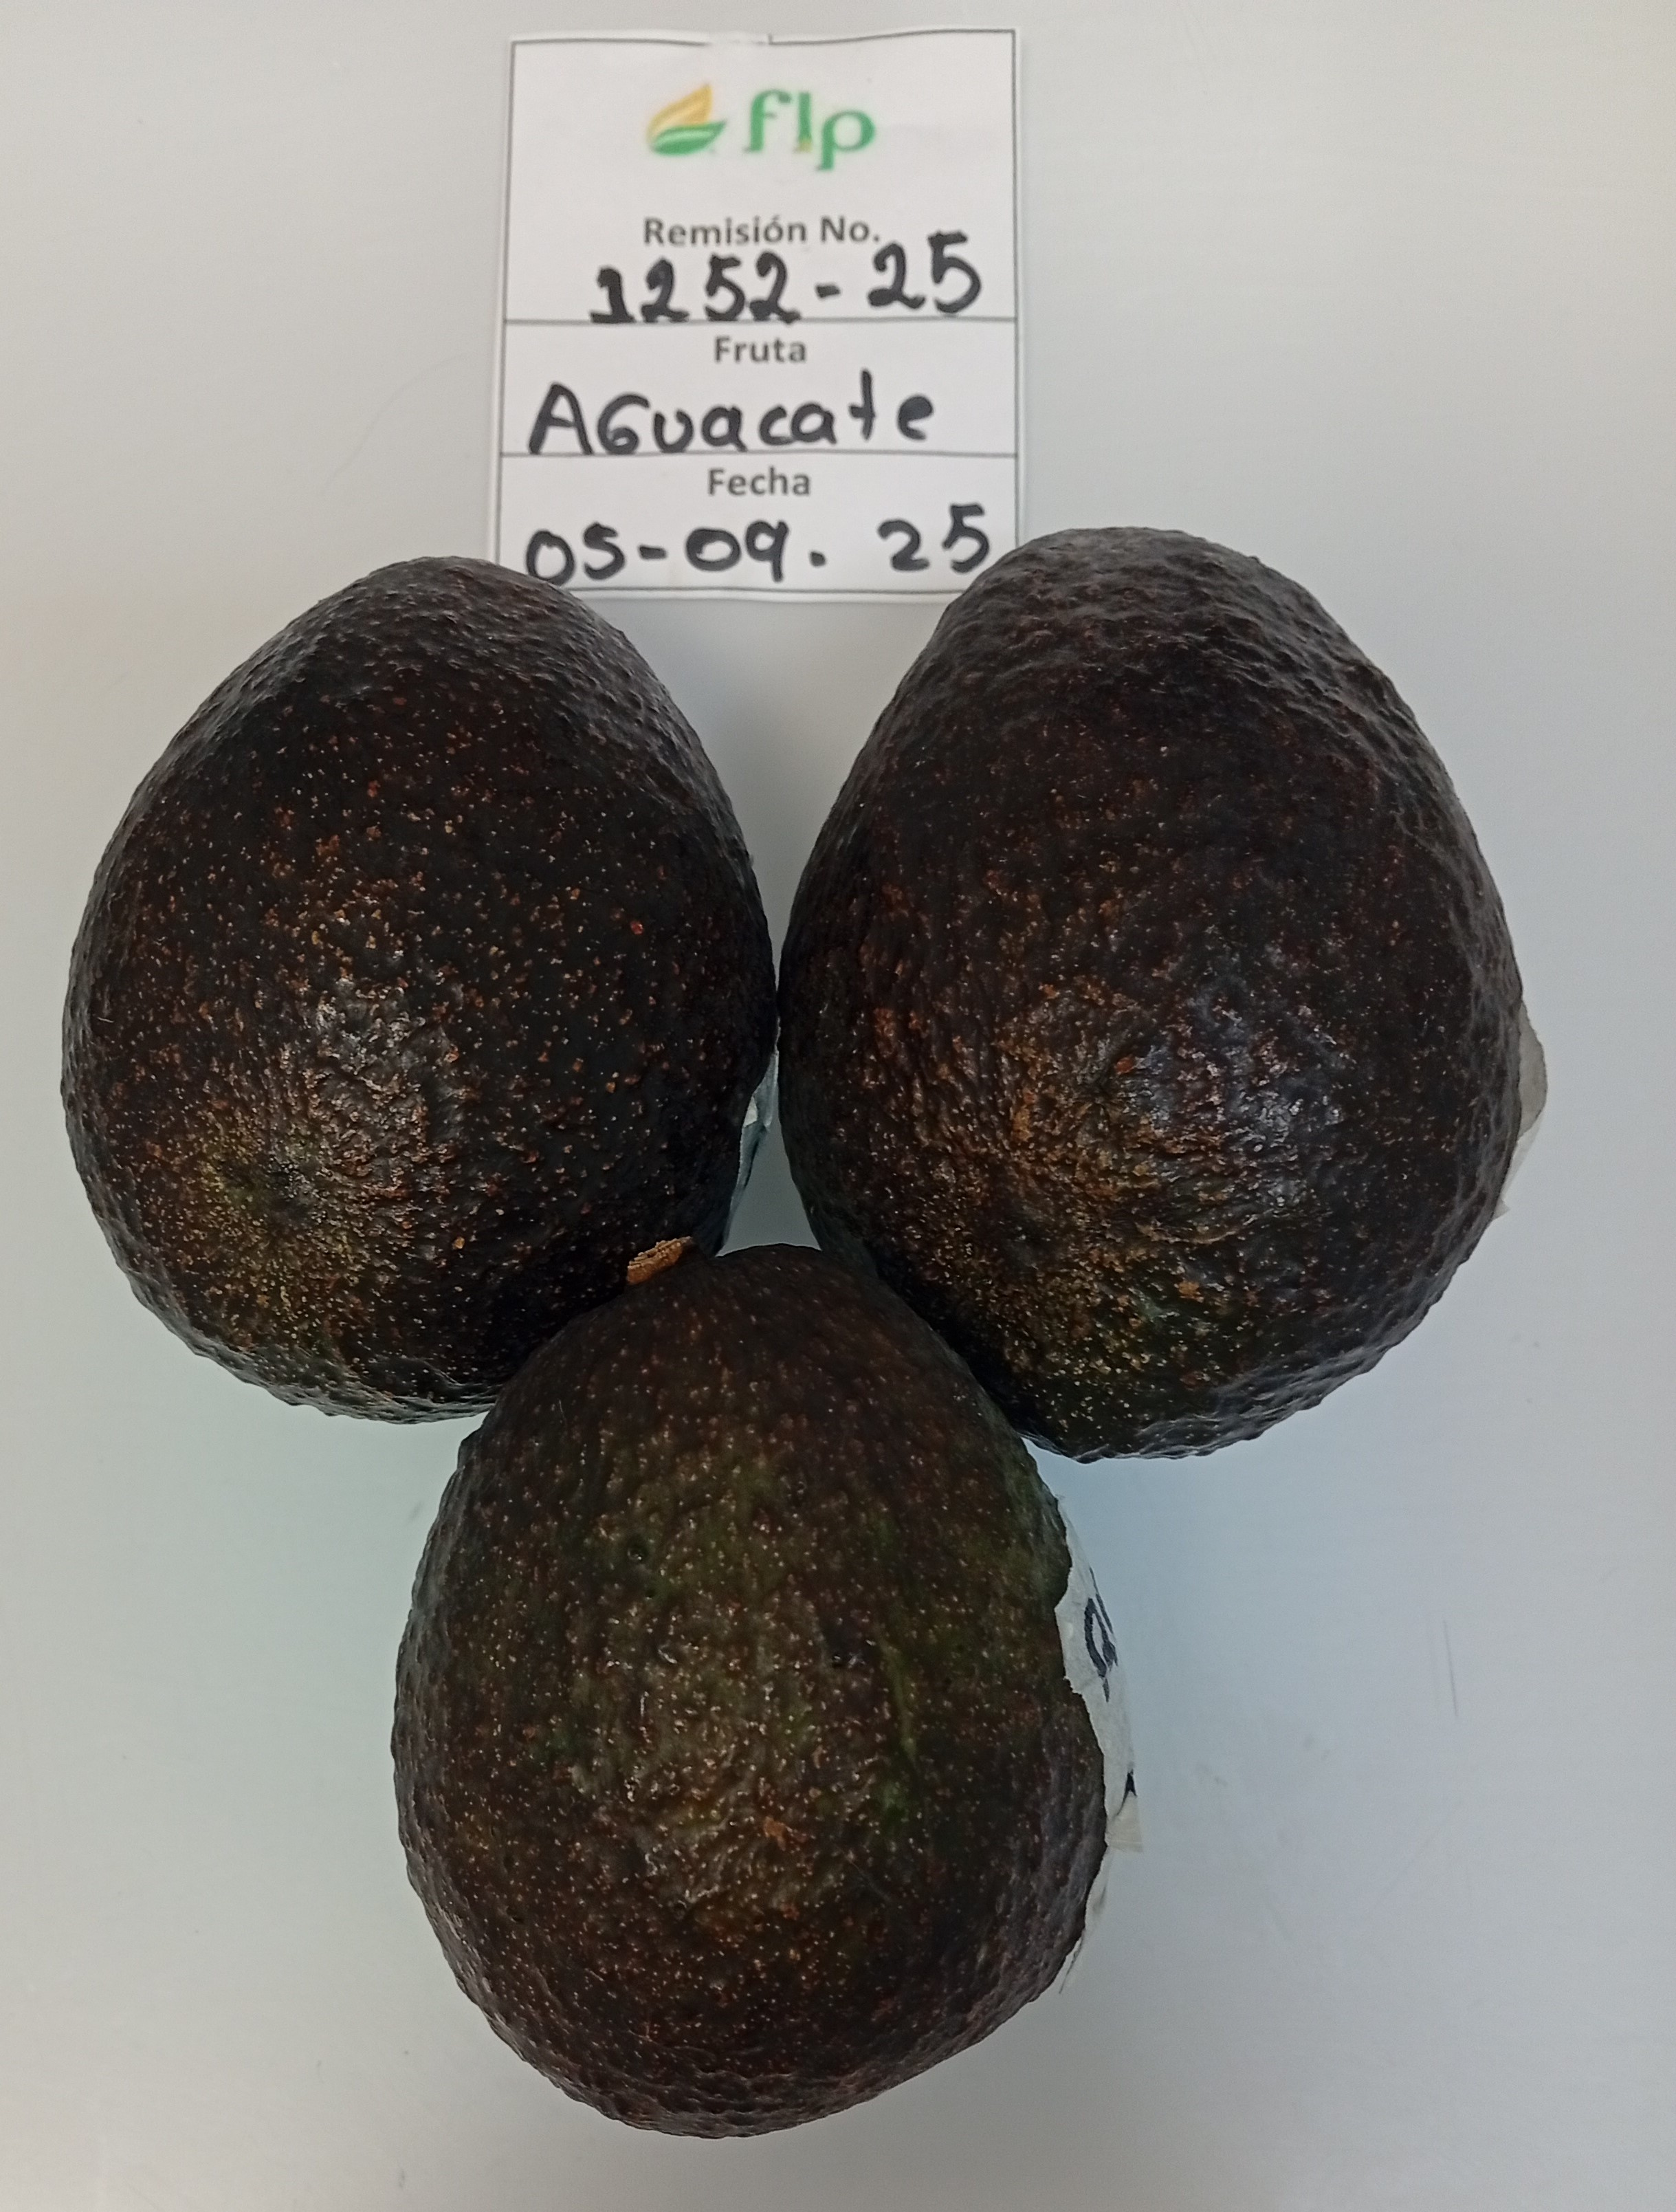 flp
Remisión No.
1252-25
Fruta
AGuacate
Fecha
05-09. 25